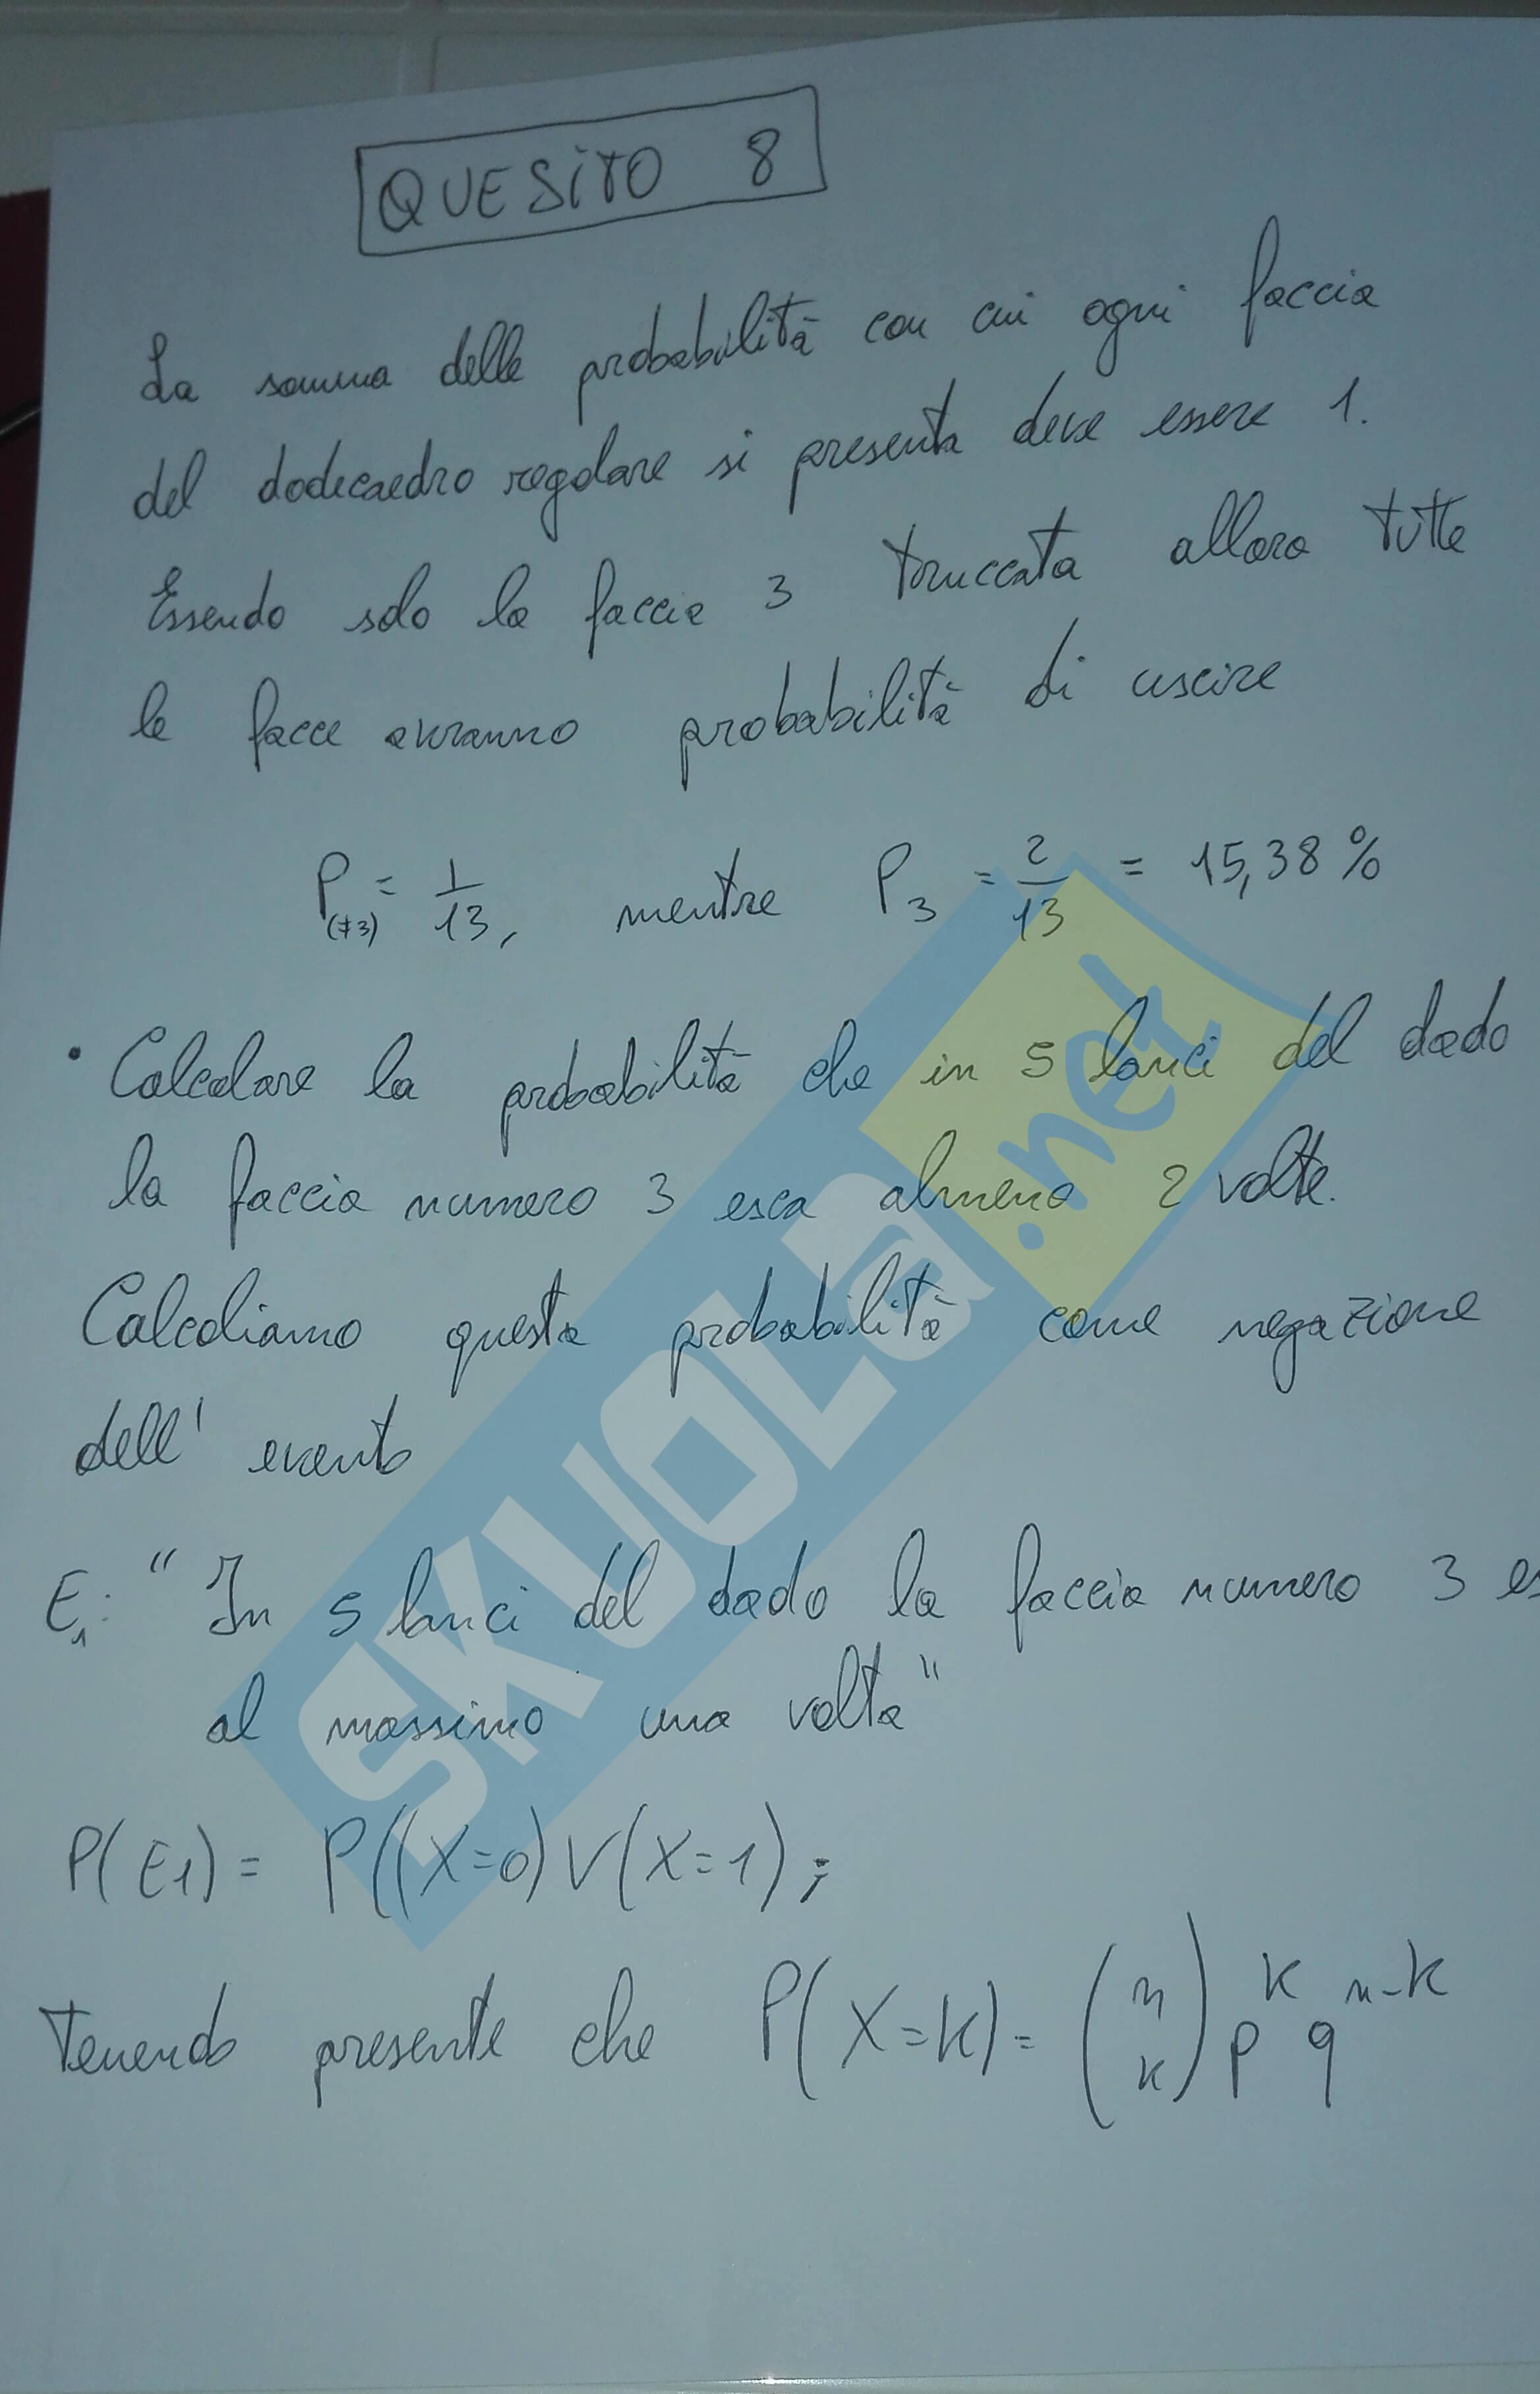 QUESITO 8
La somma delle probabilità con cui ogni faccia
del dodecaedro regolare si presenta deve essere 1.
Essendo solo la faccia 3 truccata allora tutte
le facce avranno probabilità di uscire
P(≠3) = 1/13, mentre P3 = 2/13 = 15,38 %
• Calcolare la probabilità che in 5 lanci del dado
la faccia numero 3 esca almeno 2 volte.
Calcoliamo questa probabilità come negazione
dell' evento
E1: "In 5 lanci del dado la faccia numero 3 es
al massimo una volta"
P(E1) = P((X=0) V (X=1);
Tenendo presente che P(X=k) = (n k) p^k q^n-k
SKUOLa.net